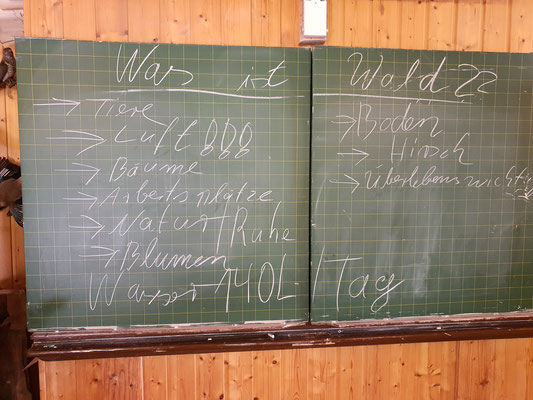 Was ist Wald??
→ Tiere
→ Luft!!!
→ Bäume
→ Arbeitsplätze
→ Natur/Ruhe
→ Blumen
→ Boden
→ Hirsch
→ Überlebenswichtig
Wasser → 140L/Tag